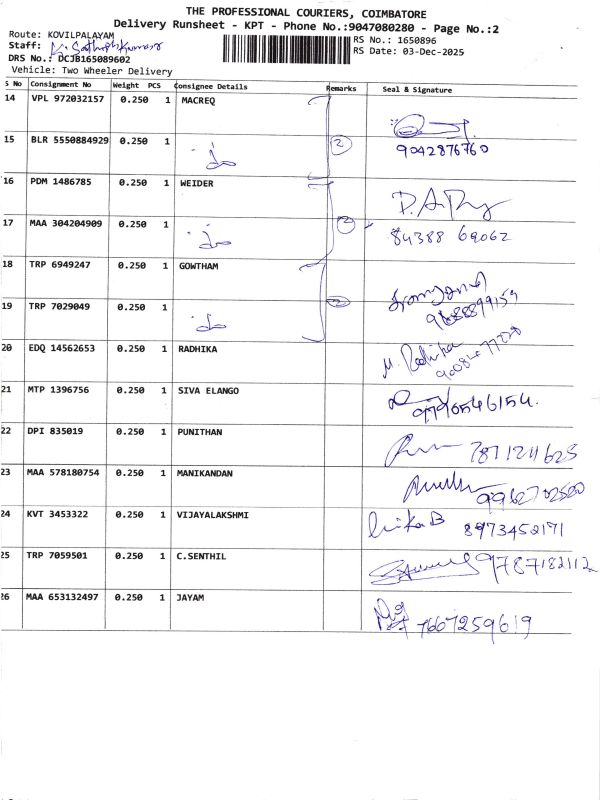 THE PROFESSIONAL COURIERS, COIMBATORE
Delivery Runsheet - KPT - Phone No.:9047080280 - Page No.:2
Route: KOVILPALAYAM
RS No.: 1650896
Staff: K. Sathish Kumar
RS Date: 03-Dec-2025
DRS No.: DCJB165089602
Vehicle: Two Wheeler Delivery
S No Consignment No Weight PCS Consignee Details Remarks Seal & Signature
14 VPL 972032157 0.250 1 MACREQ
15 BLR 5550884929 0.250 1 do 2 9042876760
16 PDM 1486785 0.250 1 WEIDER
17 MAA 304204909 0.250 1 do 2 84388 69062
18 TRP 6949247 0.250 1 GOWTHAM
19 TRP 7029049 0.250 1 do 2 9688899159
20 EDQ 14562653 0.250 1 RADHIKA M. Radhika
21 MTP 1396756 0.250 1 SIVA ELANGO 9790546154.
22 DPI 835019 0.250 1 PUNITHAN 7871211625
23 MAA 578180754 0.250 1 MANIKANDAN 9962702500
24 KVT 3453322 0.250 1 VIJAYALAKSHMI 8973452171
25 TRP 7059501 0.250 1 C.SENTHIL 9787182112
26 MAA 653132497 0.250 1 JAYAM 7667259619